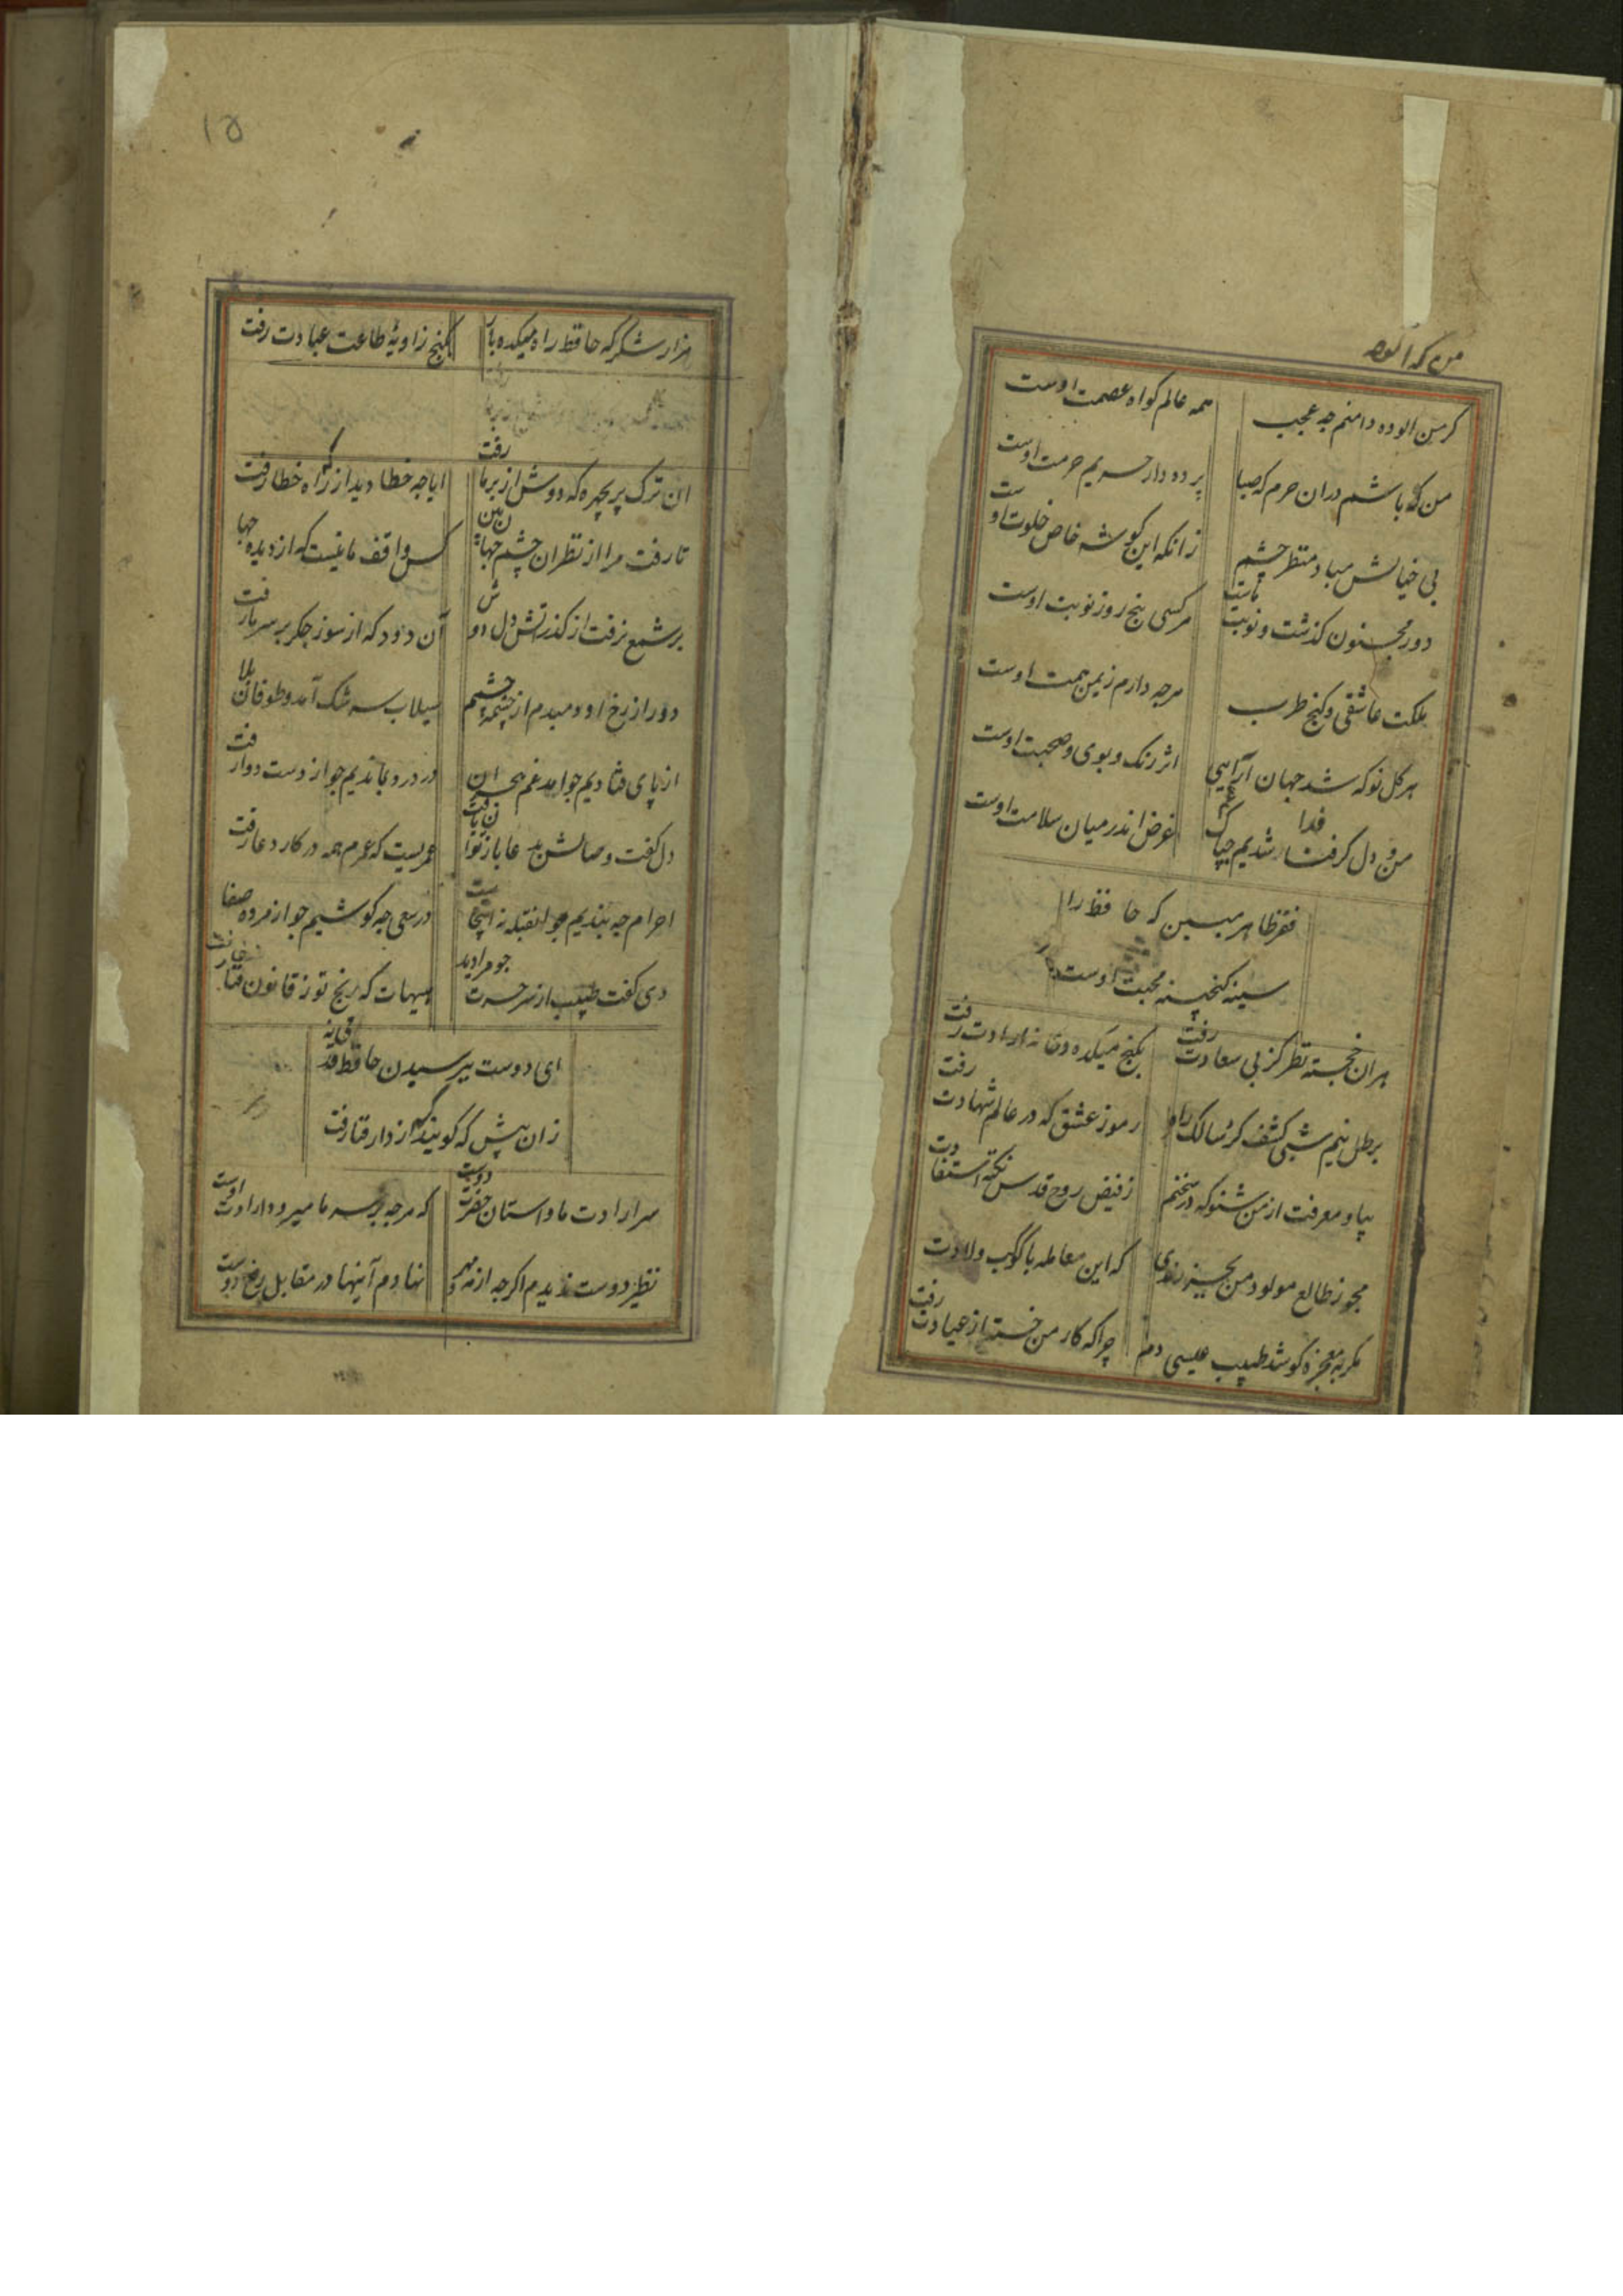 کرمن الوده دامنم چه عجب همه عالم کواه عصمت اوست
من که باشم دران حرم که صبا پرده دار حریم حرمت اوست
بی خیالش مباد منظر چشم زانکه این کوشه خاص خلوت اوست
دور مجنون کذشت و نوبت ماست هر کسی پنج روز نوبت اوست
ملکت عاشقی و کنج طرب هرچه دارم زیمن همت اوست
هر کل نو که شد جهان ارآیی اثر رنک و بوی و صحبت اوست
من و دل کر فدا شدیم چه باک غرض اندر میان سلامت اوست
فقر ظاهر مبین که حافظ را
سینه کنجینه محبت اوست
هران خجسته نظر کز پی سعادت رفت بکنج میکده و خانه ارادت رفت
برطل نیم شبی کشف کرد سالک راه رموز عشق که در عالم شهادت رفت
بیا و معرفت از من شنو که در سخنم زفیض روح قدس نکته استفادت
مجو زطالع مولود من بجز رندی که این معامله با کوکب ولادت رفت
مکر به معجزه کوشد طبیب عیسی دم چرا که کار من خسته از عیادت رفت
۱۵
هزار شکر که حافظ راه میکده باز بکنج زاویهٔ طاعت عبادت رفت
ان ترک پریچهره که دوش از بر ما رفت ایا چه خطا دید از راه خطا رفت
تا رفت مرا از نظر ان چشم جهان بین کس واقف ما نیست که از دیده چها
بر شمع نرفت از کذر آتش دل دوش آن دود که از سوز جکر بر سر ما رفت
دور از رخ او دمبدم از چشمهٔ چشم سیلاب سرشک آمد و طوفان بلا
از پای فتادیم جو امد غم هجران در درد بماندیم جو از دست دوا رفت
دل کفت وصالش بدعا باز توان یافت عمریست که عمرم همه در کار دعا رفت
احرام چه بندیم جو انقبله نه اینجاست در سعی چه کوشیم جو از مروه صفا
دی کفت طبیب از سر حسرت جو مرا دید هیهات که رنج تو ز قانون شفا رفت
ای دوست بپرسیدن حافظ قدمی نه
زان پیش که کویند که از دار فنا رفت
سر ارادت ما و استان حضرت دوست که هرچه بر سر ما میرود ارادت اوست
نظیر دوست ندیدم اکرچه از مه و مهر نهادم آینها در مقابل رخ دوست